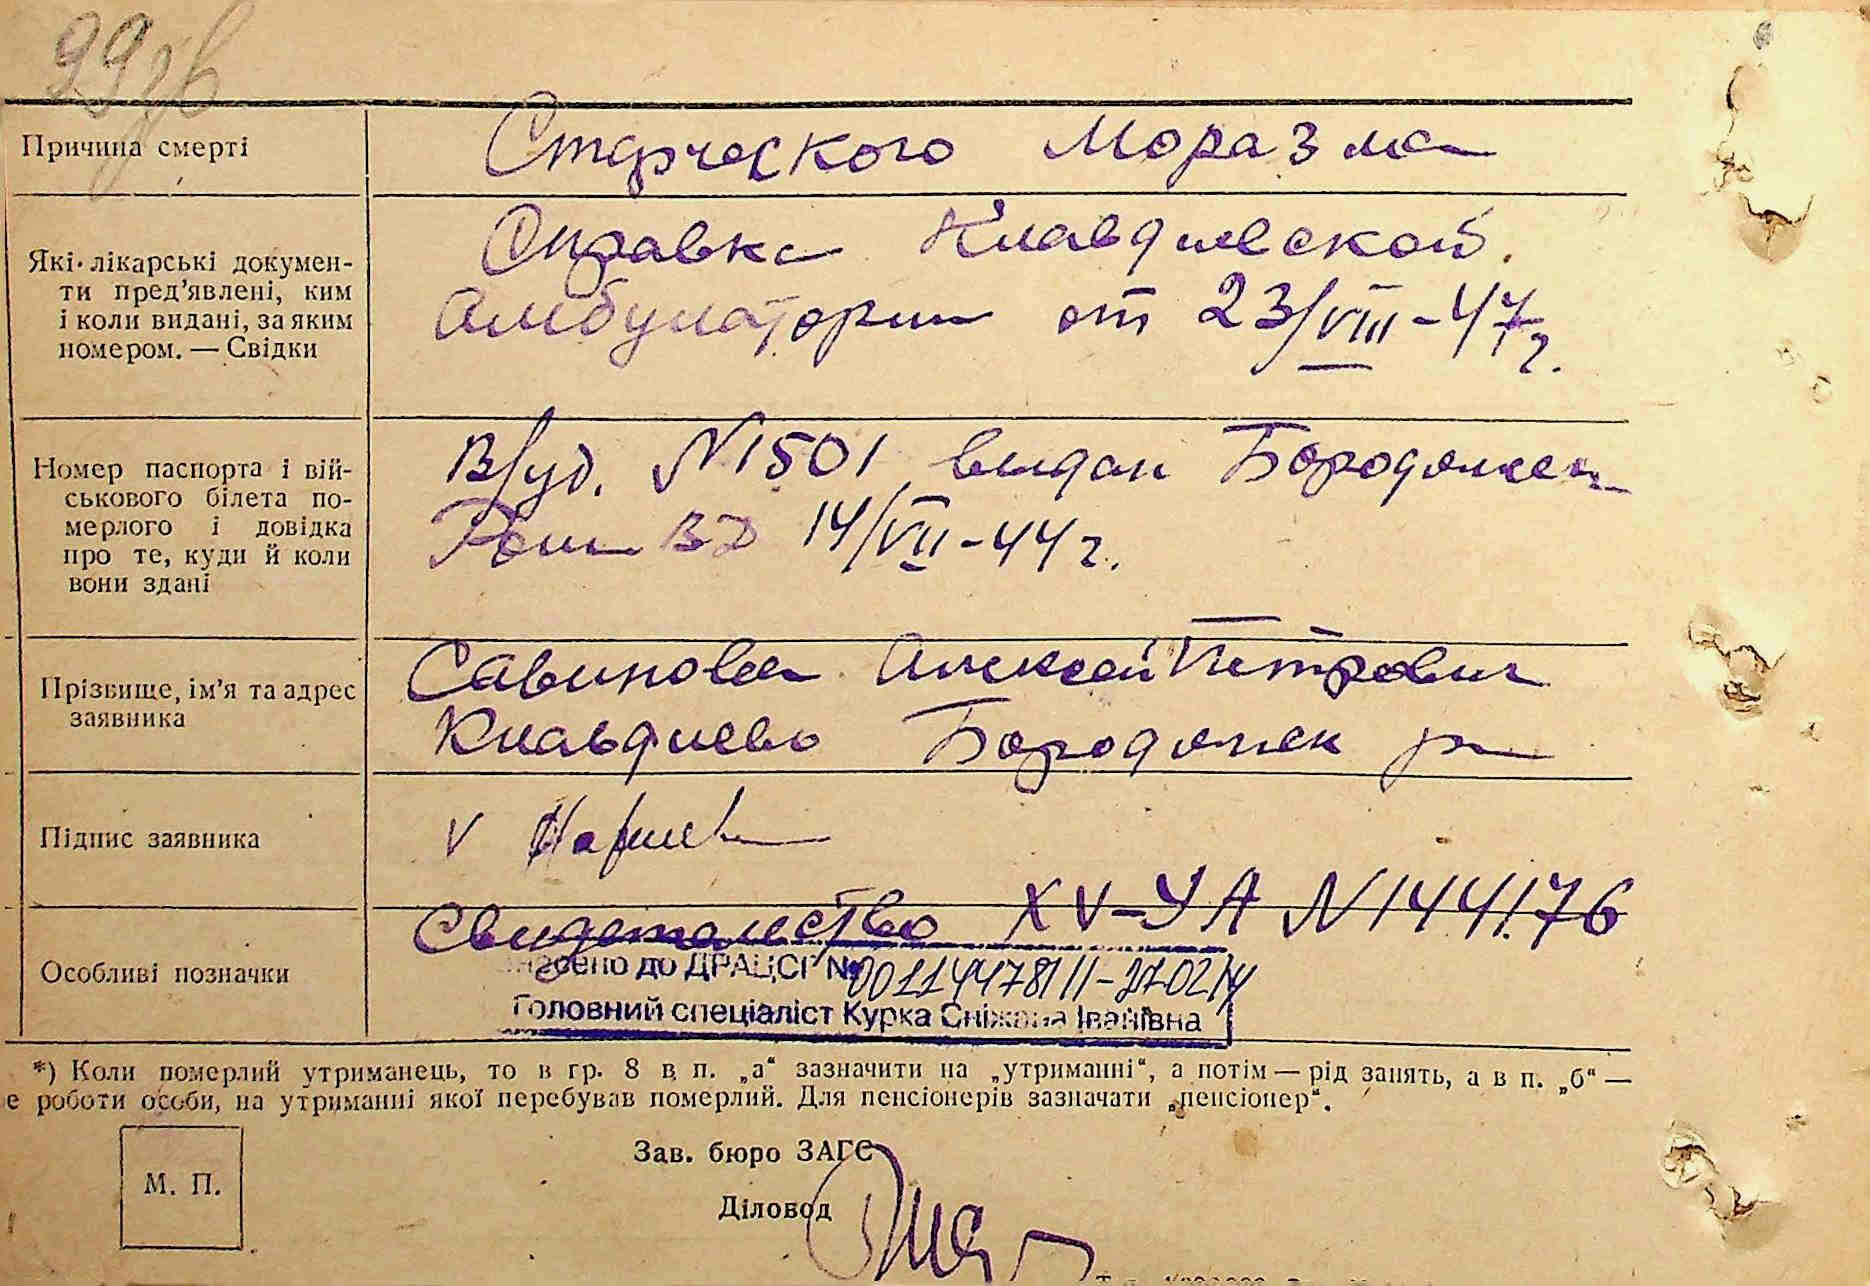 99зв
Причина смерті
Старческого Моразма
Які лікарські докумен-
ти пред’явлені, ким
і коли видані, за яким
номером. — Свідки
Справка Клавдиевской
Амбулатории от 23/VIII-47 г.
Номер паспорта і вій-
ськового білета по-
мерлого і довідка
про те, куди й коли
вони здані
В/уд. N 1501 выдан Бородянск
14/VII-44 г.
Прізвище, ім’я та адрес
заявника
Савинова Алексей Петрович
Клавдиево Бородянск р-н
Підпис заявника
V
Свидетельство XV-УА N 144176
Особливі позначки
Внесено до ДРАЦСГ №
Головний спеціаліст Курка Сніжана Іванівна
*) Коли померлий утриманець, то в гр. 8 в п. „а“ зазначити на „утриманні“, а потім — рід занять, а в п. „б“ —
е роботи особи, на утриманні якої перебував померлий. Для пенсіонерів зазначати „пенсіонер“.
М. П.
Зав. бюро ЗАГС
Діловод